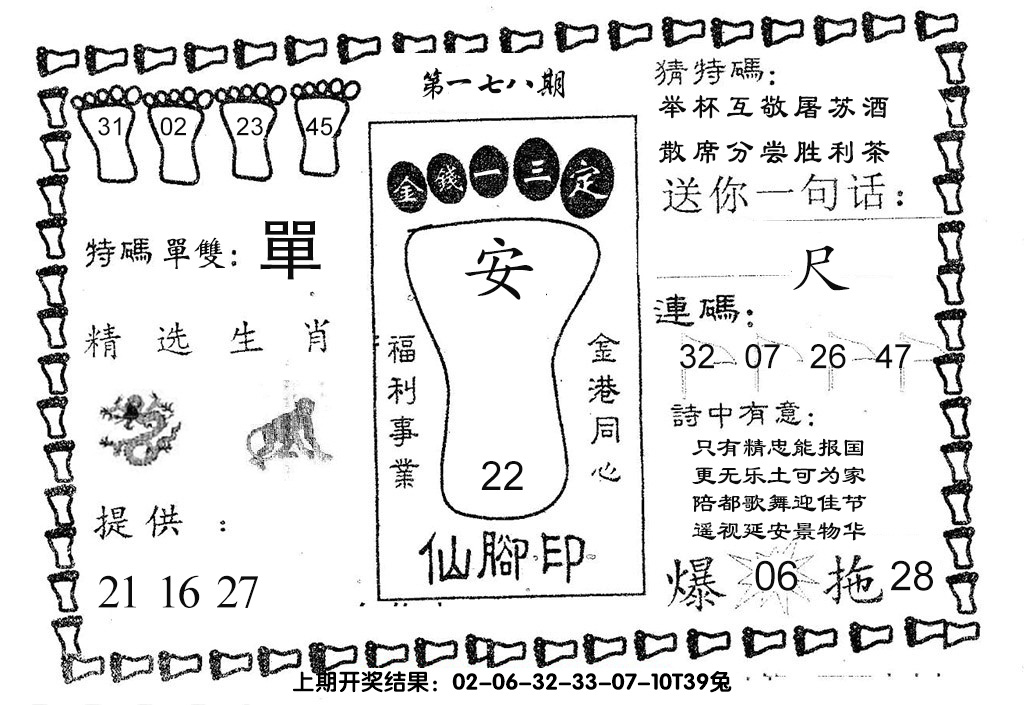 第一七八期
31 02 23 45
特碼單雙：單
精选生肖
提供：
21 16 27
金錢一三定
安
福利事業
金港同心
22
仙腳印
猜特碼：
举杯互敬屠苏酒
散席分尝胜利茶
送你一句话：
尺
連碼：
32 07 26 47
詩中有意：
只有精忠能报国
更无乐土可为家
陪都歌舞迎佳节
遥视延安景物华
爆 06 拖 28
上期开奖结果：02-06-32-33-07-10T39兔